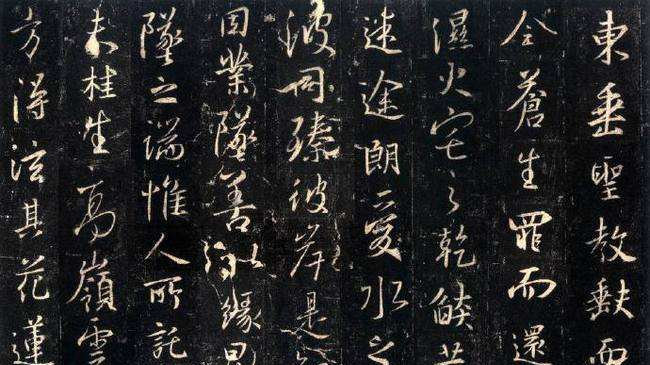 東垂聖教缺而
全蒼生罪而還
濕火宅之乾燄共
迷途朗愛水之
波同臻彼岸是
因業墜善以緣昇
墜之端惟人所託
夫桂生高嶺雲
方得泫其花蓮